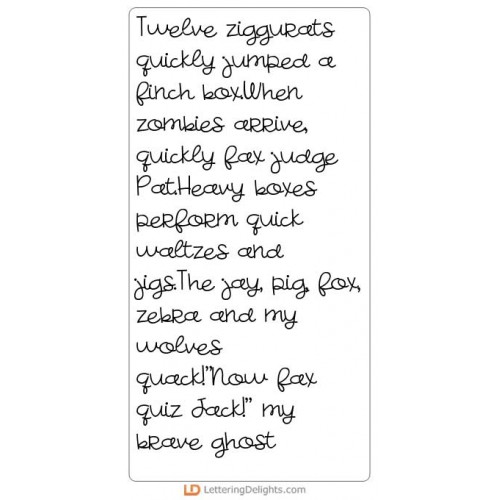 Twelve ziggurats
quickly jumped a
finch box.When
zombies arrive,
quickly fax judge
Pat.Heavy boxes
perform quick
waltzes and
jigs.The jay, pig, fox,
zebra and my
wolves
quack!"Now fax
quiz Jack!" my
brave ghost
LD LetteringDelights.com